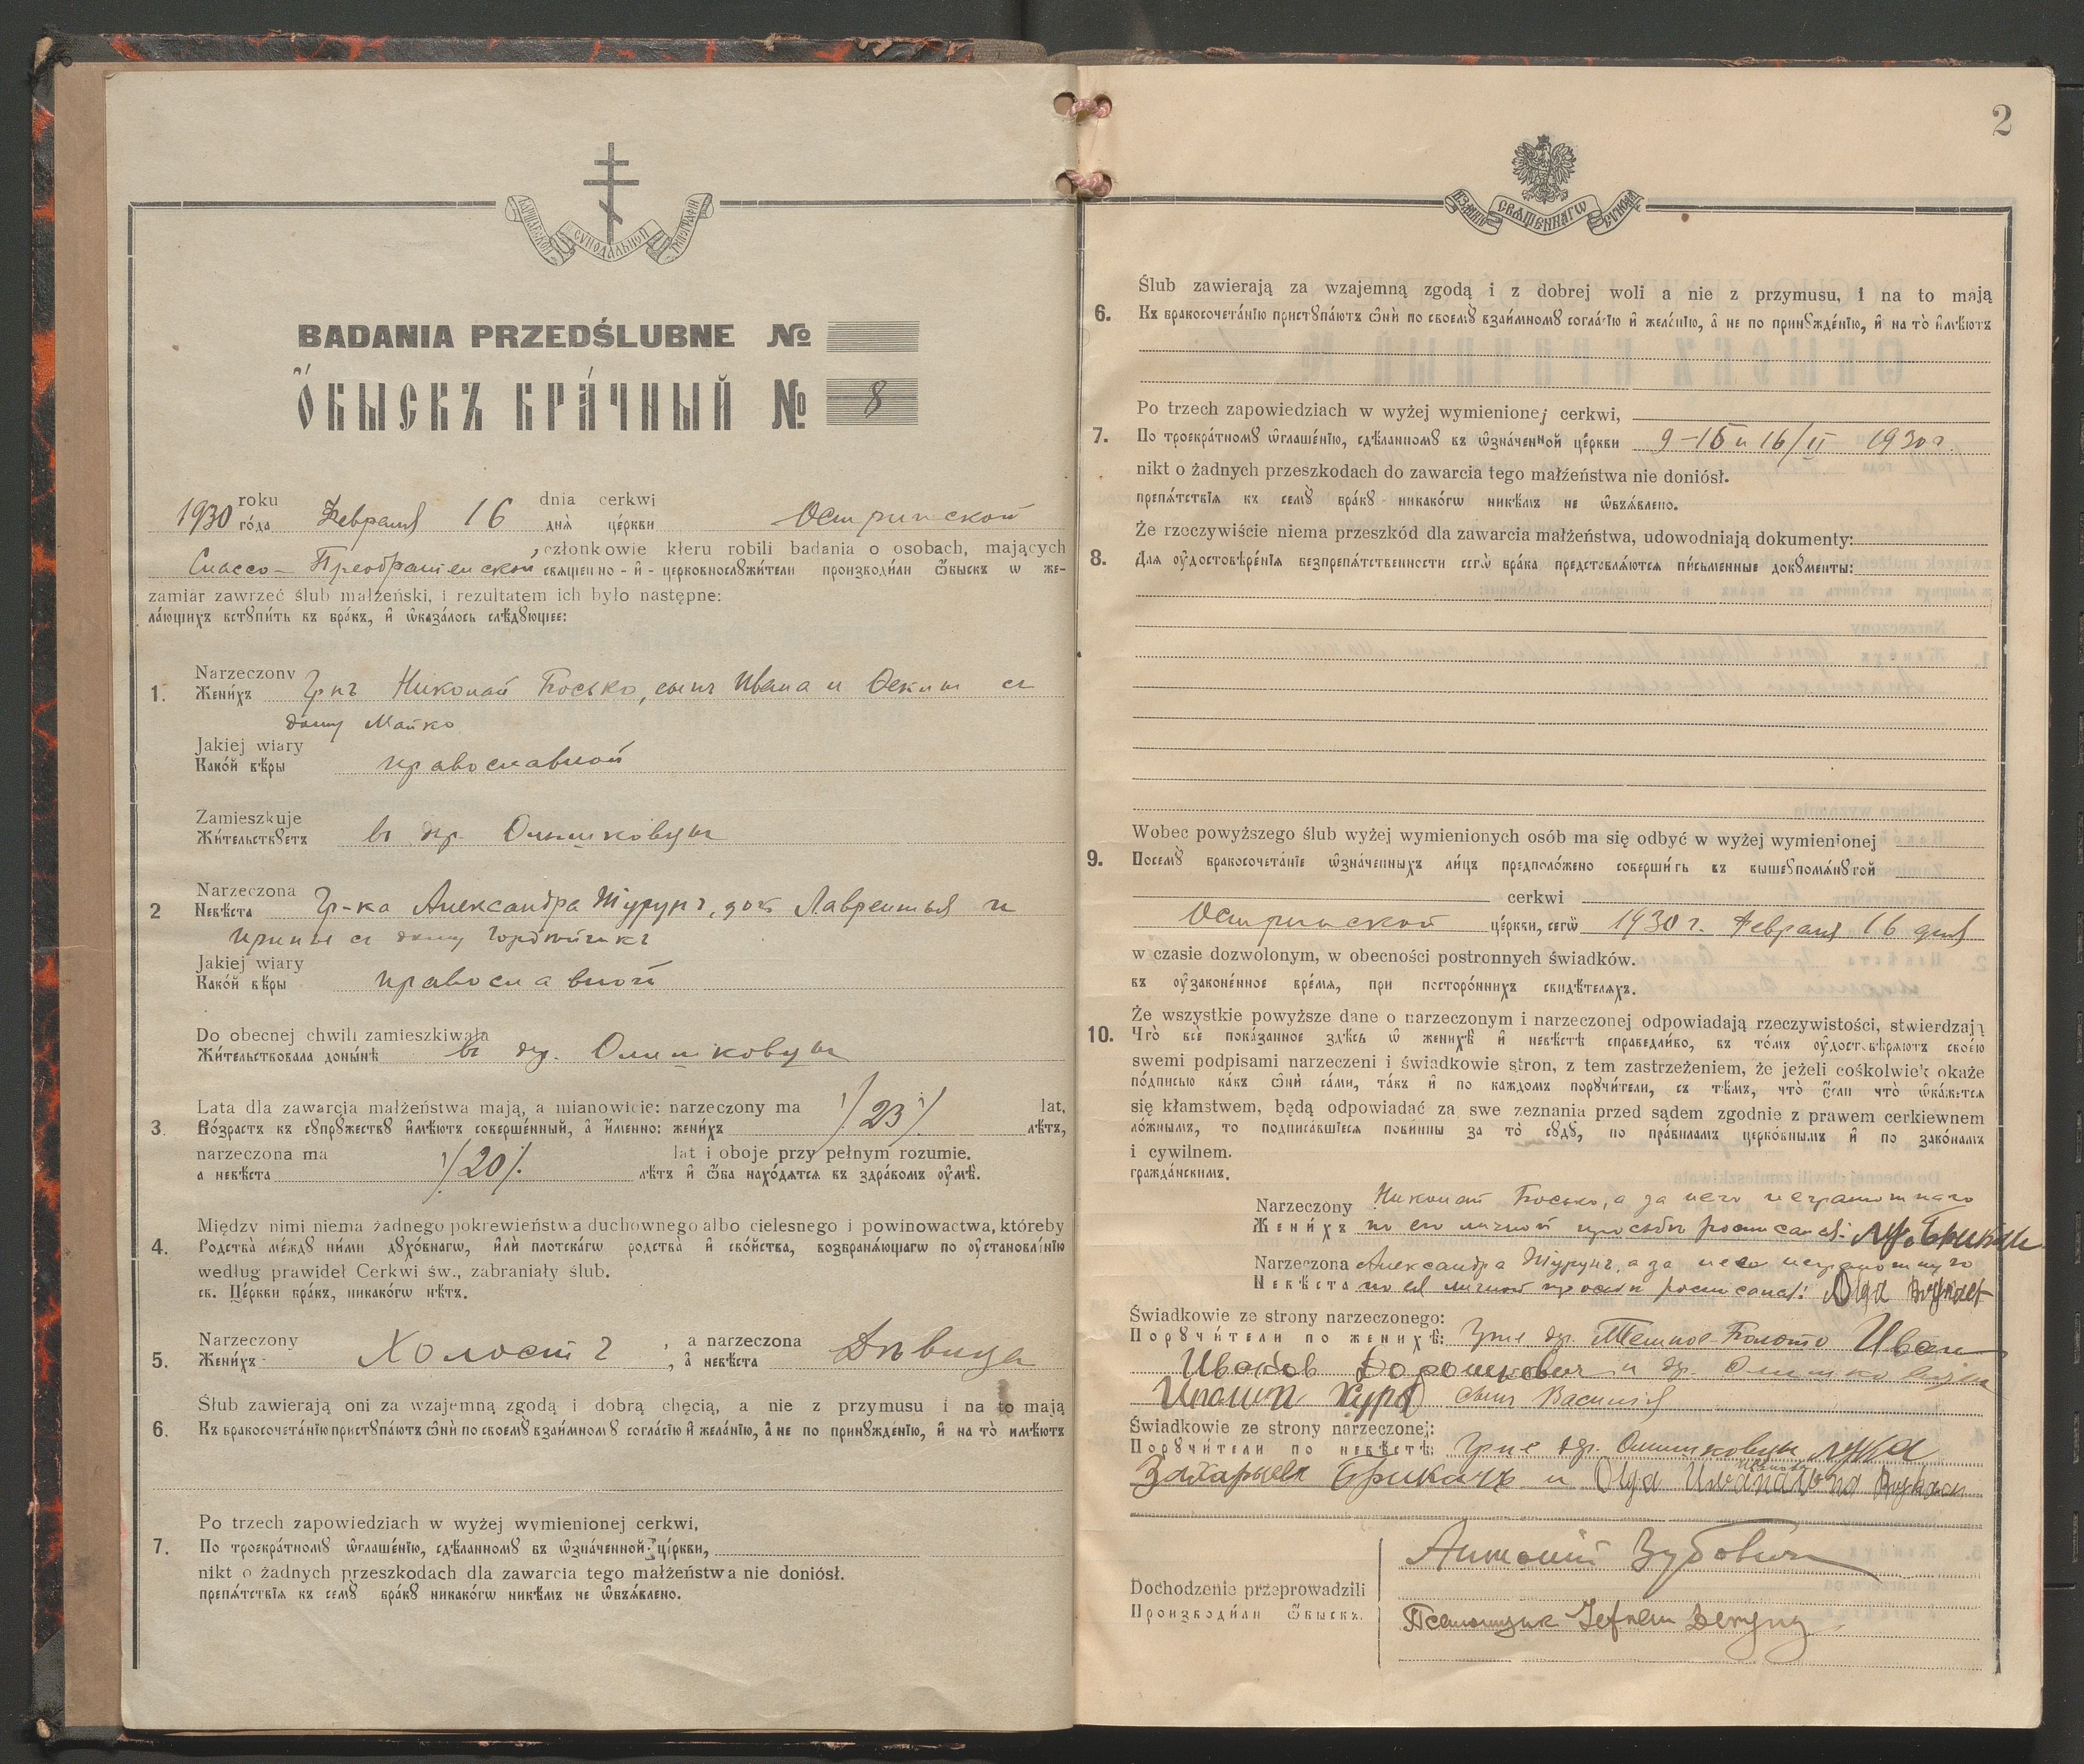 BADANIA PRZEDŚLUBNE №
Ѻ҆БЫСКЪ БРА́ЧНЫЙ № 8
1930 roku го́да Февраля 16 dnia дня̀ cerkwi це́ркви Остринской
Спасо-Преображенской członkowie kleru robili badania o osobach, mających
свѧщенно-и҆-церковнослꙋжи́тели производи́ли ѡ҆́быскъ ѡ же-
zamiar zawrzeć ślub małżeński, i rezultatem ich było następne:
ла́ющихъ встꙋпи́ть въ бра́къ, и҆ ѡ҆каза́лось слѣ́дꙋющее:
Narzeczony
1. Жени́хъ Гр-нъ Николай Босько, сынъ Ивана и
дому Майко
Jakiej wiary
Како́й вѣ́ры православной
Zamieszkuje
Жи́тельствꙋетъ въ дер. Олишковцы
Narzeczona
2 Невѣ́ста Гр-ка Александра Турунъ, дочь Лаврентья и
Ирины съ дому
Jakiej wiary
Како́й вѣ́ры православной
Do obecnej chwili zamieszkiwała
Жи́тельствовала доны́нѣ въ дер. Олишковцы
Lata dla zawarcia małżeństwa mają, a mianowicie: narzeczony ma lat,
3. Во́зрастъ къ сꙋпрꙋ́жествꙋ и҆мѣ́ютъ соверше́нный, а҆ и҆́менно: жени́хъ /23/ лѣ́тъ,
narzeczona ma lat i oboje przy pełnym rozumie.
а невѣ́ста /20/ лѣ́тъ и҆ ѻ҆́ба нахо́дятся въ здра́вомъ ᲂу҆мѣ̀.
Między nimi niema żadnego pokrewieństwa duchownego albo cielesnego i powinowactwa, któreby
4. Родства̀ ме́ждꙋ ни́ми дꙋхо́внагѡ, и҆лѝ плотска́гѡ родства̀ и҆ сво́йства, возбраня́ющагѡ по ᲂу҆становле́нїю
według prawideł Cerkwi św., zabraniały ślub.
св. Це́ркви бра́къ, никако́гѡ нѣ́тъ.
Narzeczony , a narzeczona
5. Жени́хъ Холостъ , а҆ невѣ́ста Дѣвица
Ślub zawierają oni za wzajemną zgodą i dobrą chęcią, a nie z przymusu i na to mają
6. Къ бракосочета́нїю пристꙋпа́ютъ ѻ҆нѝ по своемꙋ̀ взаи́мномꙋ согла́сїю и҆ жела́нїю, а҆ не по принꙋжде́нїю, и҆ на то̀ имѣ́ютъ
Po trzech zapowiedziach w wyżej wymienionej cerkwi,
7. По троекра́тномꙋ ѡ҆глаше́нїю, сдѣ́ланномꙋ въ ѡ҆зна́ченной це́ркви,
nikt o żadnych przeszkodach dla zawarcia tego małżeństwa nie doniósł.
препя́тствїя къ семꙋ̀ бра́кꙋ никако́гѡ никѣ́мъ не ѡ҆бъя́влено.
2
Ślub zawierają za wzajemną zgodą i z dobrej woli a nie z przymusu, i na to mają
6. Къ бракосочета́нїю пристꙋпа́ютъ ѻ҆нѝ по своемꙋ̀ взаи́мномꙋ согла́сїю и҆ жела́нїю, а҆ не по принꙋжде́нїю, и҆ на то̀ и҆мѣ́ютъ
Po trzech zapowiedziach w wyżej wymienionej cerkwi,
7. По троекра́тномꙋ ѡ҆глаше́нїю, сдѣ́ланномꙋ въ ѡ҆зна́ченной це́ркви 9-15 и 16/II 1930 г.
nikt o żadnych przeszkodach do zawarcia tego małżeństwa nie doniósł.
препя́тствїя къ семꙋ̀ бра́кꙋ никако́гѡ никѣ́мъ не ѡ҆бъя́влено.
Że rzeczywiście niema przeszkód dla zawarcia małżeństwa, udowodniają dokumenty:
8. Для ᲂу҆достовѣре́нїя безпрепя́тственности сегѡ̀ бра́ка представля́ются пи́сьменные докꙋме́нты:
Wobec powyższego ślub wyżej wymienionych osób ma się odbyć w wyżej wymienionej
9. Посемꙋ̀ бракосочета́нїе ѡ҆зна́ченныхъ ли́цъ предполо́жено соверши́ть въ вышеꙋпомя́нꙋтой
cerkwi
Остринской це́ркви, сегѡ̀ 1930 г. Февраля 16 дня
w czasie dozwolonym, w obecności postronnych świadków.
въ ᲂу҆законе́нное вре́мя, при посторо́ннихъ свидѣ́теляхъ.
Że wszystkie powyższe dane o narzeczonym i narzeczonej odpowiadają rzeczywistości, stwierdzają
10. Что̀ всѐ пока́занное здѣ́сь ѡ҆ женихѣ̀ и҆ невѣ́стѣ справедли́во, въ то́мъ ᲂу҆достовѣря́ютъ свое́ю
swemi podpisami narzeczeni i świadkowie stron, z tem zastrzeżeniem, że jeżeli cośkolwiek okaże
по́дписью какъ ѻ҆нѝ са́ми, та́къ и҆ по каждомъ порꙋчи́тели, съ тѣ́мъ, что̀ є҆́сли что̀ ѡ҆ка́жется
się kłamstwem, będą odpowiadać za swe zeznania przed sądem zgodnie z prawem cerkiewnem
ло́жнымъ, то подписа́вшїеся пови́нны за то̀ сꙋдꙋ̀, по пра́виламъ церко́внымъ и҆ по зако́намъ
i cywilnem.
гражда́нскимъ.
Narzeczony Николай Босько, а за него неграмотнаго
Жени́хъ по его личной просьбѣ росписался:
Narzeczona Александра Турунъ, а за нее неграмотную
Невѣ́ста по ея личной просьбѣ росписалась: Olga
Świadkowie ze strony narzeczonego:
Порꙋчи́тели по женихѣ̀: Гр-не др. Темное-Болото Иван
Иваков Дорошкевич и др. Олишковцы
Ипатъ сынъ Василія
Świadkowie ze strony narzeczonej:
Порꙋчи́тели по невѣ́стѣ: Гр-не др. Олишковцы Лука
Захарьев Брикачъ и Olga
Антоній Зубович
Dochodzenie przeprowadzili
Производи́ли ѡ҆́быскъ
Псаломщик